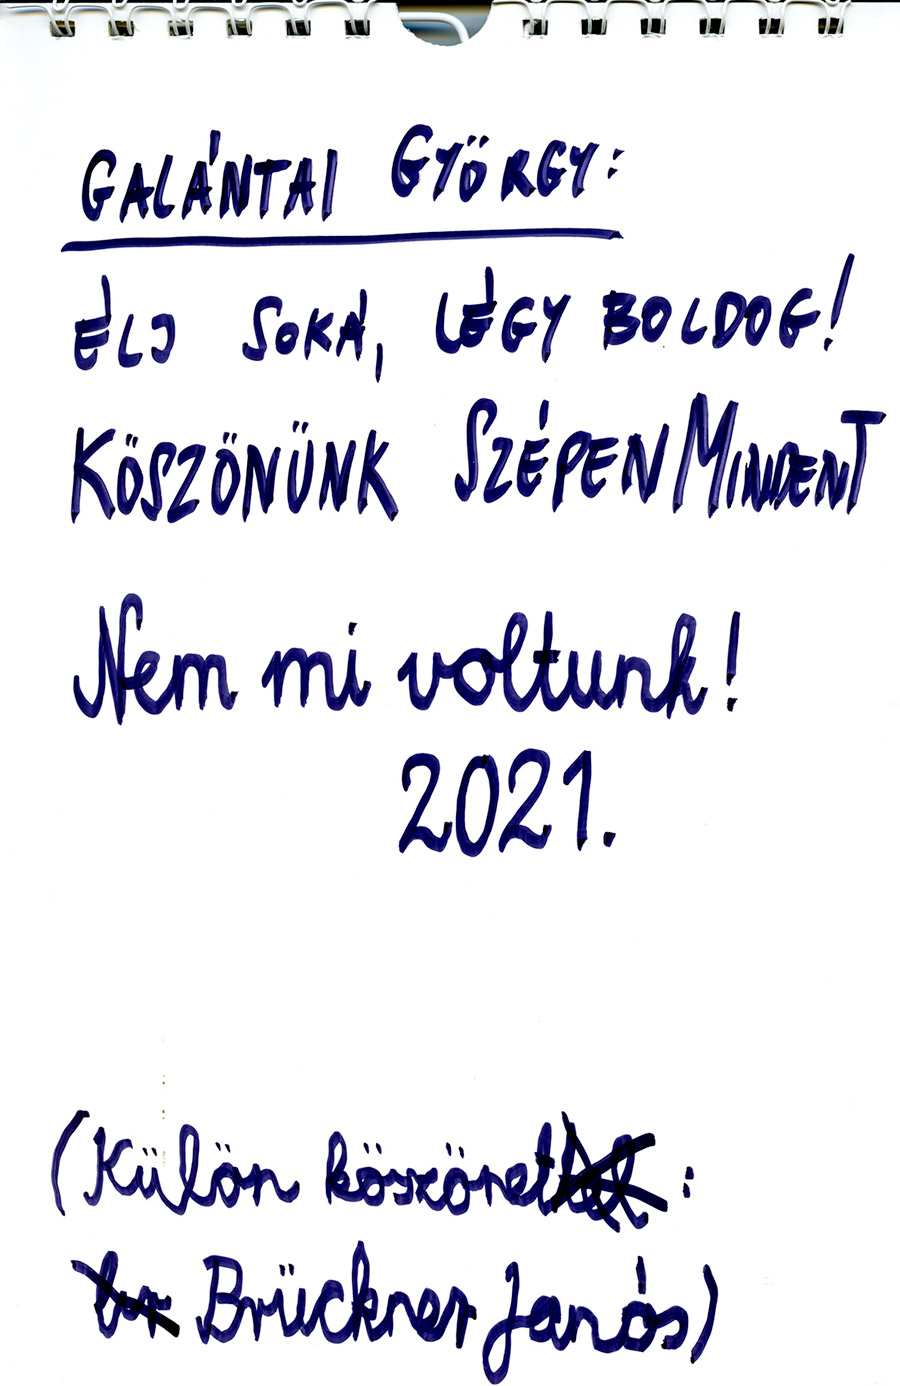 GALÁNTAI GYÖRGY:
ÉLJ SOKÁ, LÉGY BOLDOG!
KÖSZÖNÜNK SZÉPEN MINDENT
Nem mi voltunk!
2021.
(Külön köszönet :
Brückner János)